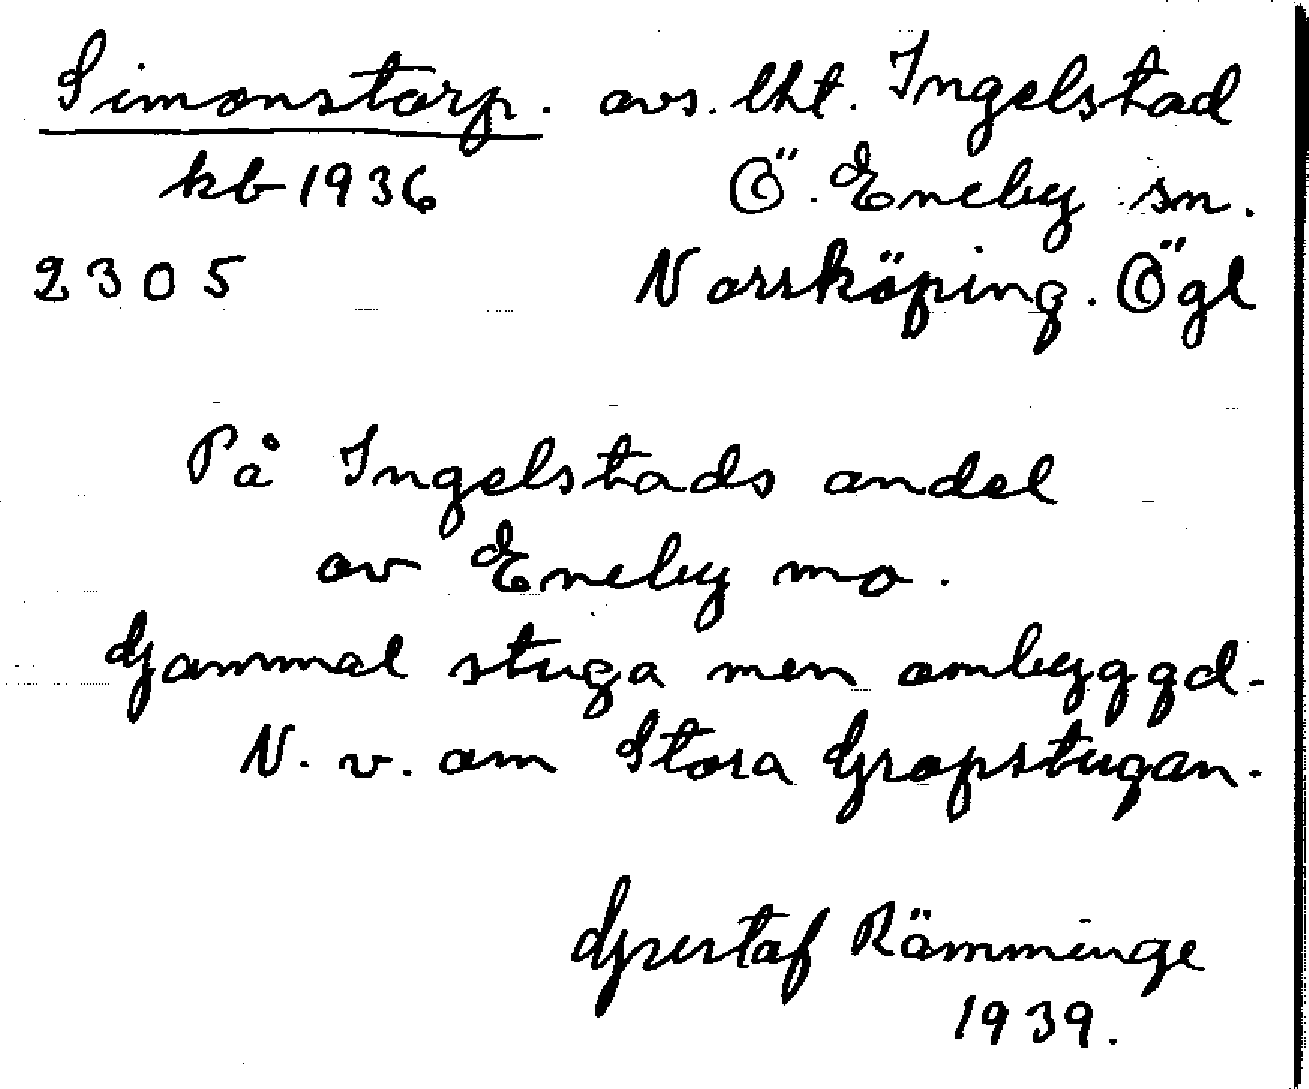 Simonstorp. avs. lht. Ingelstad
kb 1936 Ö. Eneby sn.
2305 Norrköping. Ögl
På Ingelstads andel
av Eneby mo.
Gammal stuga men ombyggd.
N. v. om Stora Gropstugan.
Gustaf Rämminge
1939.